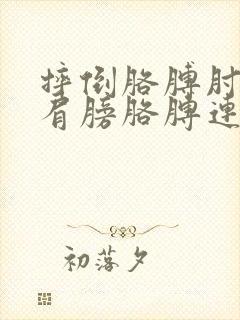 摔倒胳膊肘
肩膀胳膊连
初落夕